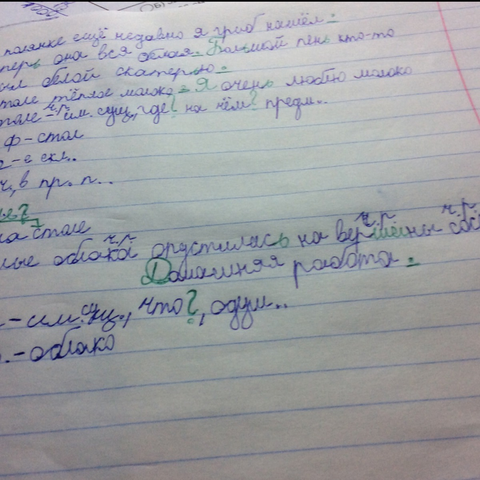 полянке ещё недавно я гриб нашёл.
перь она вся белая. Большой пень кто-то
ыл белой скатертью.
толе тёплое молоко. Я очень люблю молоко
толе - им. сущ., где? на чём? предм..
ф - стол
2-е скл..
ч., в пр. п..
на столе
ч.р. ч.р. ч.р.
лые облака опустилась на вершины сос
Домашняя работа.
- им. сущ., что?, одум..
.-облако